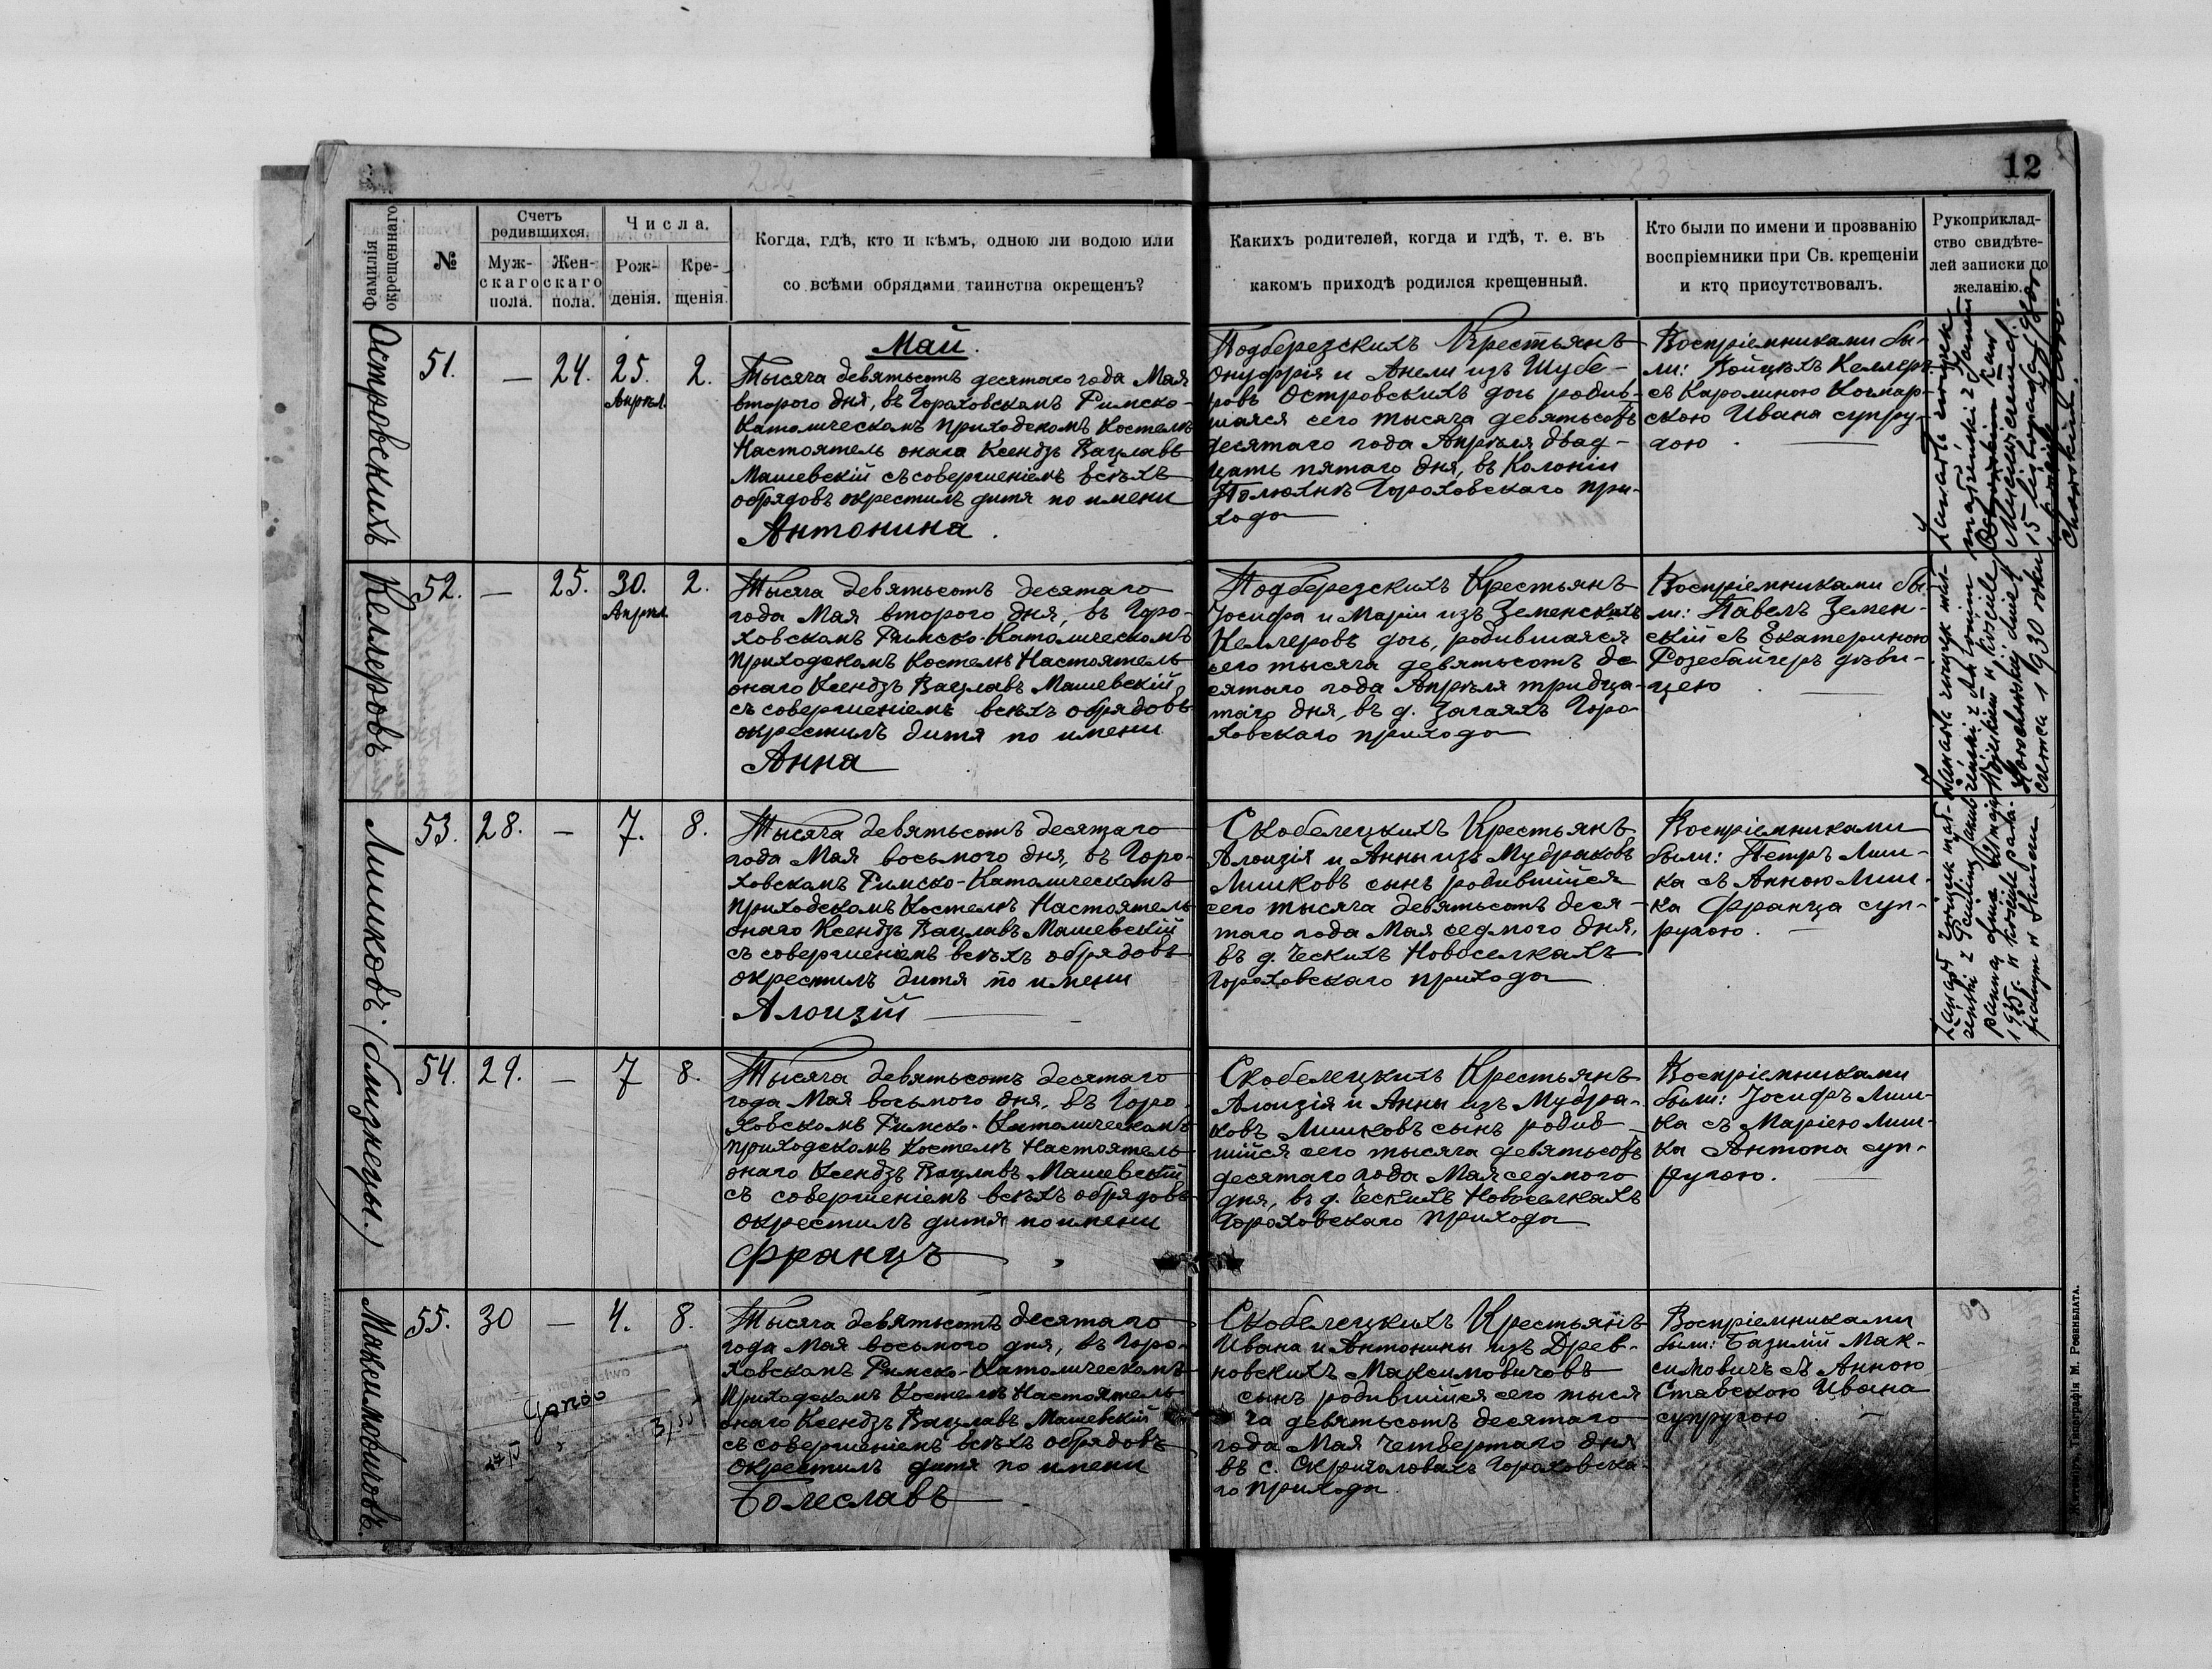 12
Фамилія окрещеннаго
№
Счетъ родившихся.
Мужскаго пола.
Женскаго пола.
Числа.
Рожденія.
Крещенія.
Когда, гдѣ, кто и кѣмъ, одною ли водою или
со всѣми обрядами таинства окрещенъ?
Какихъ родителей, когда и гдѣ, т. е. въ
какомъ приходѣ родился крещенный.
Кто были по имени и прозванію
воспріемники при Св. крещеніи
и кто присутствовалъ.
Рукоприклад-
ство свидѣте-
лей записки по
желанію.
Островскихъ
51.
—
24.
25.
Апрѣл.
2.
Май.
Тысяча девятьсотъ десятаго года Мая
второго дня, въ Гороховскомъ Римско-
Католическомъ приходскомъ Костелѣ
Настоятель онаго Ксендзъ Вацлавъ
Машевскій съ совершеніемъ всѣхъ
обрядовъ окрестилъ дитя по имени
Антонина.
Подберезскихъ Крестьянъ
Онуфрія и Анели изъ Шубе-
ровъ Островскихъ дочь родив-
шаяся сего тысяча девятьсотъ
десятаго года Апрѣля двад-
цать пятаго дня, въ Колоніи
Гороховскаго при-
хода
Воспріемниками бы-
ли: Войцѣхъ Келлеръ
съ Каролиною Кочмар-
скою Ивана супру-
гою
Келлеровъ
52.
—
25.
30.
Апрѣл
2.
Тысяча девятьсотъ десятаго
года Мая второго дня, въ Горо-
ховскомъ Римско-Католическомъ
приходскомъ Костелѣ Настоятель
онаго Ксендзъ Вацлавъ Машевскій
съ совершеніемъ всѣхъ обрядовъ
окрестилъ дитя по имени
Анна
Подберезскихъ Крестьянъ
Іосифа и Маріи изъ Земенскихъ
Келлеровъ дочь, родившаяся
сего тысяча девятьсотъ де
сятаго года Апрѣля тридца-
таго дня, въ д. Загаяхъ Горо-
ховскаго прихода
Воспріемниками бы-
ли: Павелъ Земен-
скій съ Екатериною
Розебайгеръ дѣви-
цею
Лишковъ (близнецы.)
53.
28.
—
7.
8.
Тысяча девятьсотъ десятаго
года Мая восьмого дня, въ Горо-
ховскомъ Римско-Католическомъ
приходскомъ Костелѣ Настоятель
онаго Ксендзъ Вацлавъ Машевскій
съ совершеніемъ всѣхъ обрядовъ
окрестилъ дитя по имени
Алоизій
Скобелецкихъ Крестьянъ
Алоизія и Анны изъ Мудраковъ
Лишковъ сынъ родившійся
сего тысяча девятьсотъ деся-
таго года Мая седмого дня,
въ д. Ческихъ Новоселкахъ
Гороховскаго прихода
Воспріемниками
были: Петръ Лиш-
ка съ Анною Лиш-
ка Франца суп-
ругою.
54.
29.
—
7
8.
Тысяча девятьсотъ десятаго
года Мая восьмого дня, въ Горо-
ховскомъ Римско-Католическомъ
приходскомъ Костелѣ Настоятель
онаго Ксендзъ Вацлавъ Машевскій
съ совершеніемъ всѣхъ обрядовъ
окрестилъ дитя по имени
Францъ
Скобелецкихъ Крестьянъ
Алоизія и Анны изъ Мудра-
ковъ Лишковъ сынъ родив-
шійся сего тысяча девятьсотъ
десятаго года Мая седмого
дня, въ д. Ческихъ Новоселкахъ
Гороховскаго прихода
Воспріемниками
были: Іосифъ Лиш-
ка съ Маріею Лиш-
ка Антона суп-
ругою.
Максимовичовъ.
55.
30
—
4.
8.
Тысяча девятьсотъ десятаго
года Мая восьмого дня, въ Горо-
ховскомъ Римско-Католическомъ
приходскомъ Костелѣ Настоятель
онаго Ксендзъ Вацлавъ Машевскій
съ совершеніемъ всѣхъ обрядовъ
окрестилъ дитя по имени
Болеславъ
Скобелецкихъ Крестьянъ
Ивана и Антонины изъ Древ-
новскихъ Максимовичовъ
сынъ родившійся сего тыся
ча девятьсотъ десятаго
года Мая четвертаго дня
въ с. Скригаловахъ Гороховска-
го прихода.
Воспріемниками
были: Базилій Мак-
симовичъ съ Анною
Ставскою Ивана
супругою
Житоміръ, Типографія М. Розенблата.